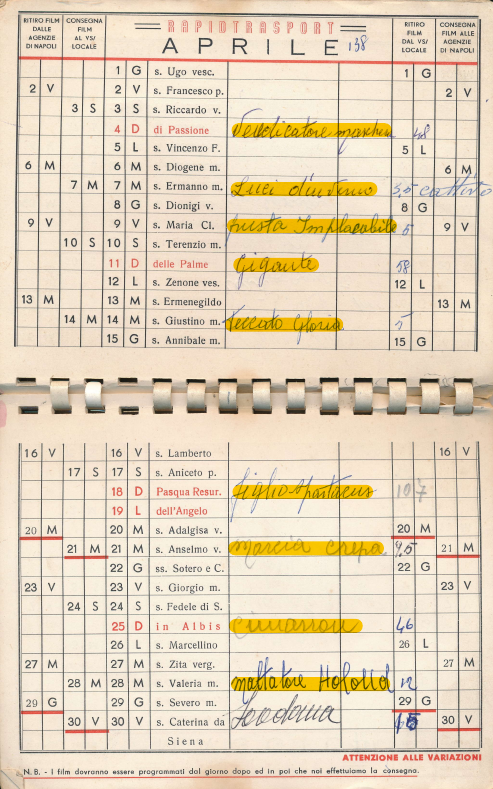 RITIRO FILM DALLE AGENZIE DI NAPOLI
CONSEGNA FILM AL VS/ LOCALE
RAPIDTRASPORT
APRILE 138
RITIRO FILM DAL VS/ LOCALE
CONSEGNA FILM ALLE AGENZIE DI NAPOLI
1 G s. Ugo vesc. 1 G
2 V 2 V s. Francesco p. 2 V
3 S 3 S s. Riccardo v.
4 D di Passione 48
5 L s. Vincenzo F. 5 L
6 M 6 M s. Diogene m. 6 M
7 M 7 M s. Ermanno m. Luci d'inverno 3,5 cattivo
8 G s. Dionigi v. 8 G
9 V 9 V s. Maria Cl. pista Implacabile 5 9 V
10 S 10 S s. Terenzio m.
11 D delle Palme Gigante 58
12 L s. Zenone ves. 12 L
13 M 13 M s. Ermenegildo 13 M
14 M 14 M s. Giustino m. Gloria
15 G s. Annibale m. 15 G
16 V 16 V s. Lamberto 16 V
17 S 17 S s. Aniceto p.
18 D Pasqua Resur. figlio spartacus 107
19 L dell'Angelo
20 M 20 M s. Adalgisa v. 20 M
21 M 21 M s. Anselmo v. Marcia crepa. 9,5 21 M
22 G ss. Sotero e C. 22 G
23 V 23 V s. Giorgio m. 23 V
24 S 24 S s. Fedele di S.
25 D in Albis cimarron 46
26 L s. Marcellino 26 L
27 M 27 M s. Zita verg. 27 M
28 M 28 M s. Valeria m. mattatore Holood 12
29 G 29 G s. Severo m. 29 G
30 V 30 V s. Caterina da Siena 15 30 V
ATTENZIONE ALLE VARIAZIONI
N. B. - I film dovranno essere programmati dal giorno dopo ed in poi che noi effettuiamo la consegna.